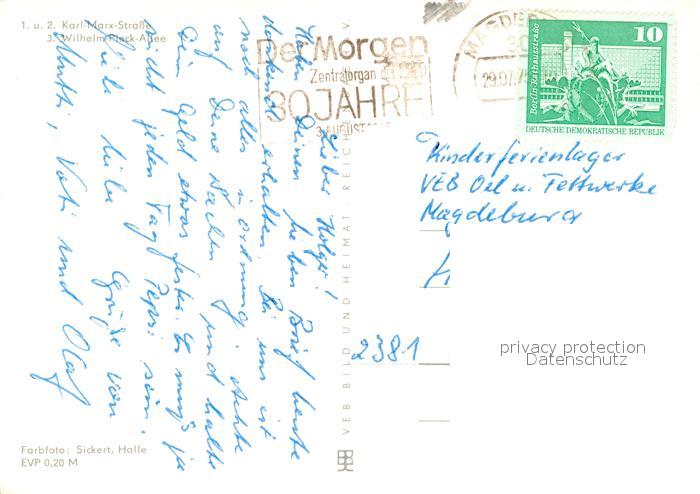 1. u. 2. Karl-Marx-Straße
3. Wilhelm-Pieck-Allee
Der Morgen
Zentralorgan der LDPD
30 JAHRE
3. AUGUST
MAGDEBURG
29.07.75
Berlin-Rathausstraße
10
DEUTSCHE DEMOKRATISCHE REPUBLIK
Lieber Holger!
Haben Deinen lieben Brief heute
dankend erhalten. Bei uns ist
noch alles in Ordnung. Achte
auf Deine Sachen und halte
Dein Geld etwas fester. Es muß ja
nicht jeden Tag Pepsi sein.
Viele liebe Grüße von
Mutti, Vati und Olaf
Kinderferienlager
VEB Oel u. Fettwerke
Magdeburg
2381
privacy protection
Datenschutz
VEB BILD UND HEIMAT · REICH V
Farbfoto: Sickert, Halle
EVP 0,20 M